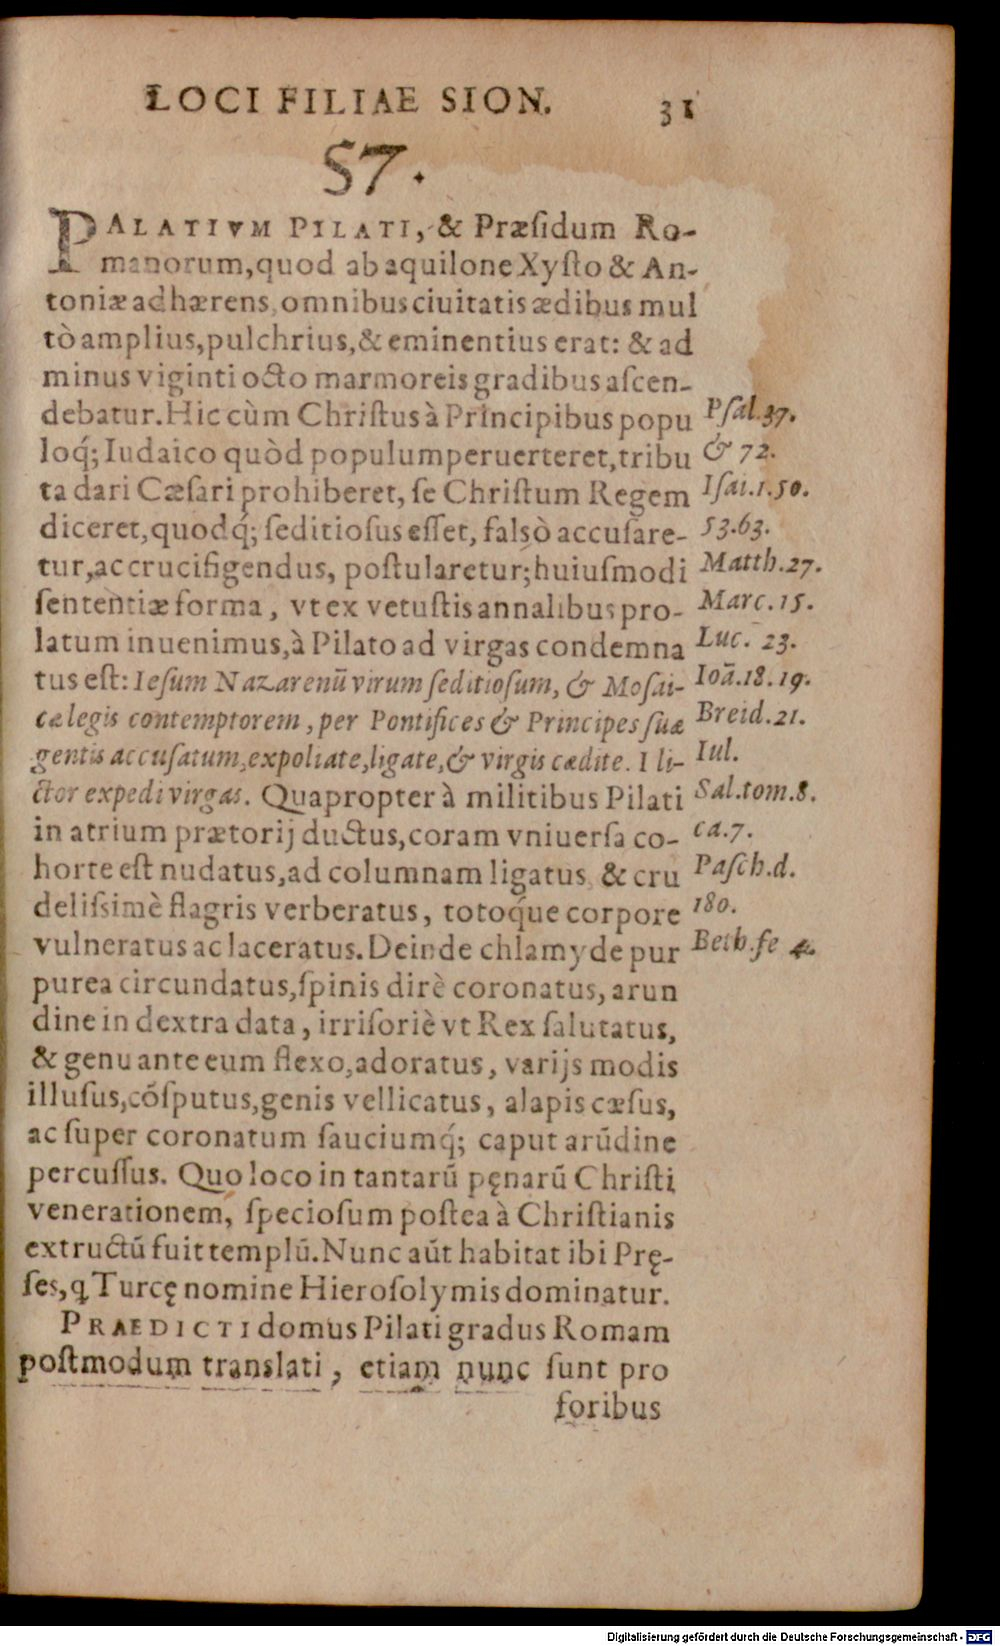 LOCI FILIAE SION. 31
57.
PALATIVM PILATI, & Præſidum Ro-
manorum, quod ab aquilone Xyſto & An-
toniæ adhærens, omnibus ciuitatis ædibus mul
tò amplius, pulchrius, & eminentius erat: & ad
minus viginti octo marmoreis gradibus aſcen-
debatur. Hic cùm Chriſtus à Principibus popu
loq́; Iudaico quòd populum peruerteret, tribu
ta dari Cæſari prohiberet, ſe Chriſtum Regem
diceret, quodq́; ſeditioſus eſſet, falsò accuſare-
tur, ac crucifigendus, poſtularetur; huiuſmodi
ſententiæ forma, vt ex vetuſtis annalibus pro-
latum inuenimus, à Pilato ad virgas condemna
tus eſt: Ieſum Nazarenū virum ſeditioſum, & Moſai-
cæ legis contemptorem, per Pontifices & Principes ſuæ
gentis accuſatum, expoliate, ligate, & virgis cædite. I li-
ctor expedi virgas. Quapropter à militibus Pilati
in atrium prætorij ductus, coram vniuerſa co-
horte eſt nudatus, ad columnam ligatus, & cru
deliſsimè flagris verberatus, totoq́ue corpore
vulneratus ac laceratus. Deinde chlamyde pur
purea circundatus, ſpinis dirè coronatus, arun
dine in dextra data, irriſoriè vt Rex ſalutatus,
& genu ante eum flexo, adoratus, varijs modis
illuſus, cōſputus, genis vellicatus, alapis cæſus,
ac ſuper coronatum ſauciumq́; caput arūdine
percuſſus. Quo loco in tantarū pęnarū Chriſti
venerationem, ſpecioſum poſtea à Chriſtianis
extructū fuit templū. Nunc aūt habitat ibi Prę-
ſes, q Turcę nomine Hieroſolymis dominatur.
PRAEDICTI domus Pilati gradus Romam
poſtmodum translati, etiam nunc ſunt pro
foribus
Pſal. 37.
& 72.
Iſai. 1. 50.
53. 63.
Matth. 27.
Marc. 15.
Luc. 23.
Ioā. 18. 19.
Breid. 21.
Iul.
Sal. tom. 8.
ca. 7.
Paſch. d.
180.
Beth. fe 4.
Digitalisierung gefördert durch die Deutsche Forschungsgemeinschaft - DFG